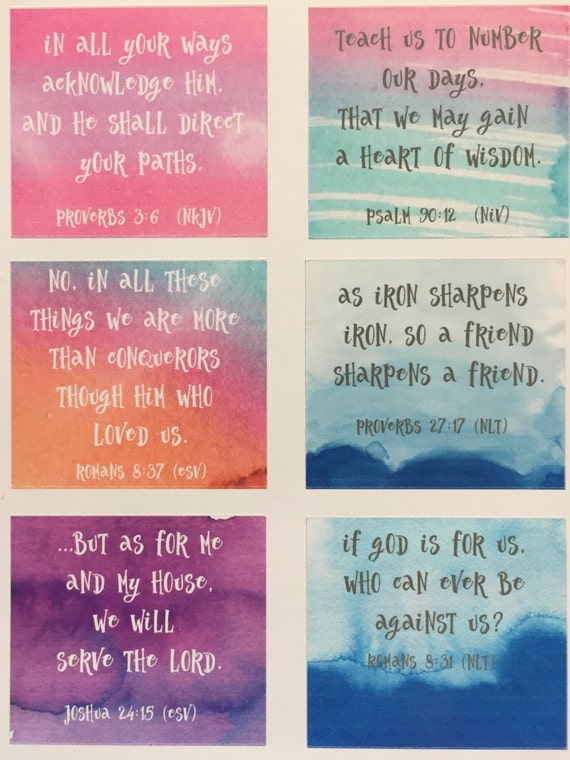 in all your ways
acknowledge Him,
and He shall direct
your paths.
Proverbs 3:6 (NKJV)
Teach us to number
our days,
that we may gain
a heart of wisdom.
Psalm 90:12 (NIV)
No, in all these
things we are more
than conquerors
though Him who
loved us.
Romans 8:37 (ESV)
as iron sharpens
iron, so a friend
sharpens a friend.
Proverbs 27:17 (NLT)
...But as for me
and my house,
we will
serve the Lord.
Joshua 24:15 (ESV)
if God is for us,
who can ever be
against us?
Romans 8:31 (NLT)